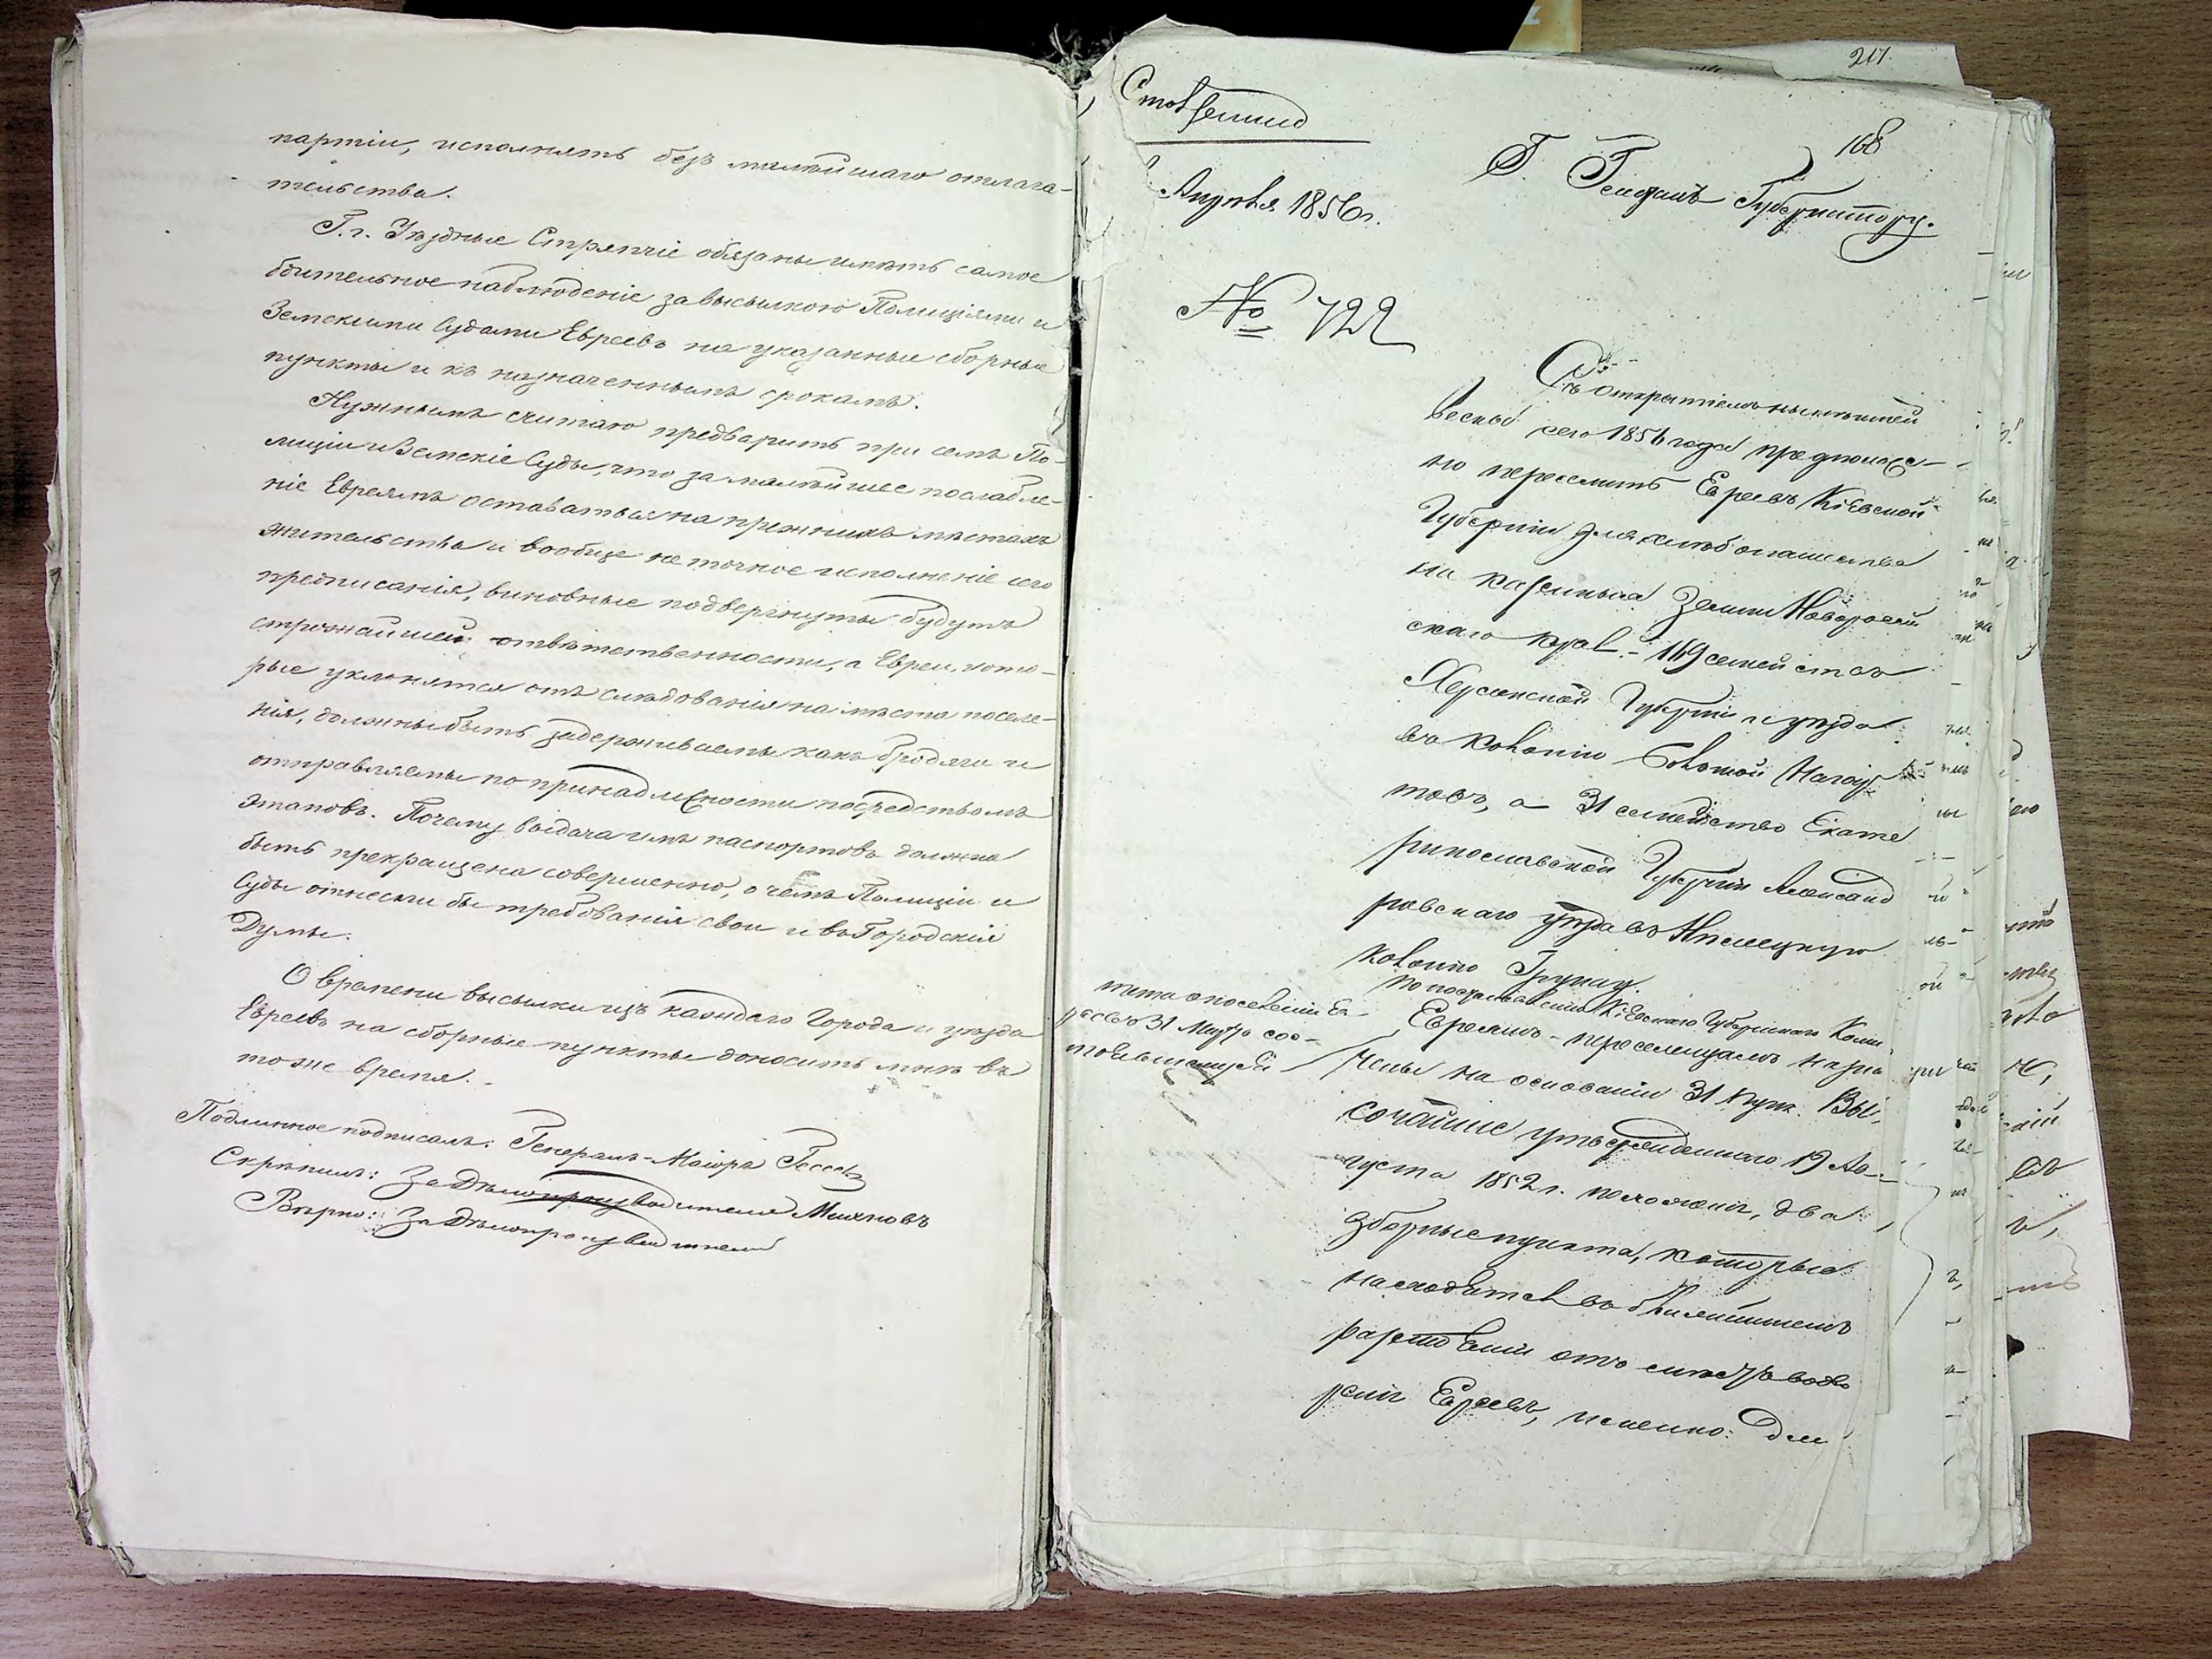 партіи, исполнять безъ малѣйшаго отлага-
тельства.
Г.г. Уѣздные Стряпчіе обязаны имѣть самое
бдительное наблюденіе за высылкою Полиціями и
Земскими Судами Евреевъ на указанные сборные
пункты и къ назначеннымъ срокамъ.
Нужнымъ считаю предварить при семъ По-
лиціи и Земскіе Суды, что за малѣйшее послабле-
ніе Евреямъ оставаться на прежнихъ мѣстахъ
жительства и вообще не точное исполненіе сего
предписанія, виновные подвергнуты будутъ
строжайшей отвѣтственности, а Евреи, кото-
рые уклонятся отъ слѣдованія на мѣста поселе-
нія, должны быть задерживаемы какъ бродяги и
отправляемы по принадлежности посредствомъ
этаповъ. Почему выдача имъ паспортовъ должна
быть прекращена совершенно, о чемъ Полиціи и
Суды отнесли бы требованія свои и въ Городскія
Думы.
О времени высылки изъ каждаго Города и уѣзда
Евреевъ на сборные пункты доносить мнѣ въ
тоже время.
Подлинное подписалъ: Генералъ-Маіоръ Гессе
Скрѣпилъ: За Дѣлопроизводителя
Вѣрно: За Дѣлопроизводителя
217.
168
Апрѣля 1856 г.
Г. Генералъ Губернатору.
№ 722
Съ открытіемъ нынѣшней
весны сего 1856 года предположе-
но переселить Евреевъ Кіевской
Губерніи для хлѣбопашества
на казенныя земли Новороссій
скаго края - 149 семействъ
Херсонской Губерніи и уѣзда
въ колонію
а 31 семейство Екате
ринославской Губерніи Александ
ровскаго уѣзда въ Нѣмецкую
колонію Грунау.
По постановленію Кіевскаго Губернскаго Коми
тета о поселеніи Ев-
реевъ 31 Марта сос-
тоявшемуся
Евреямъ - переселенцамъ назна
чены на основаніи 31 пунк. Вы-
сочайше утвержденнаго 19 Ав-
густа 1852 г. положенія, два
зборные пункта, которые
находятся въ ближайшемъ
разстояніи отъ
Евреевъ, именно: для